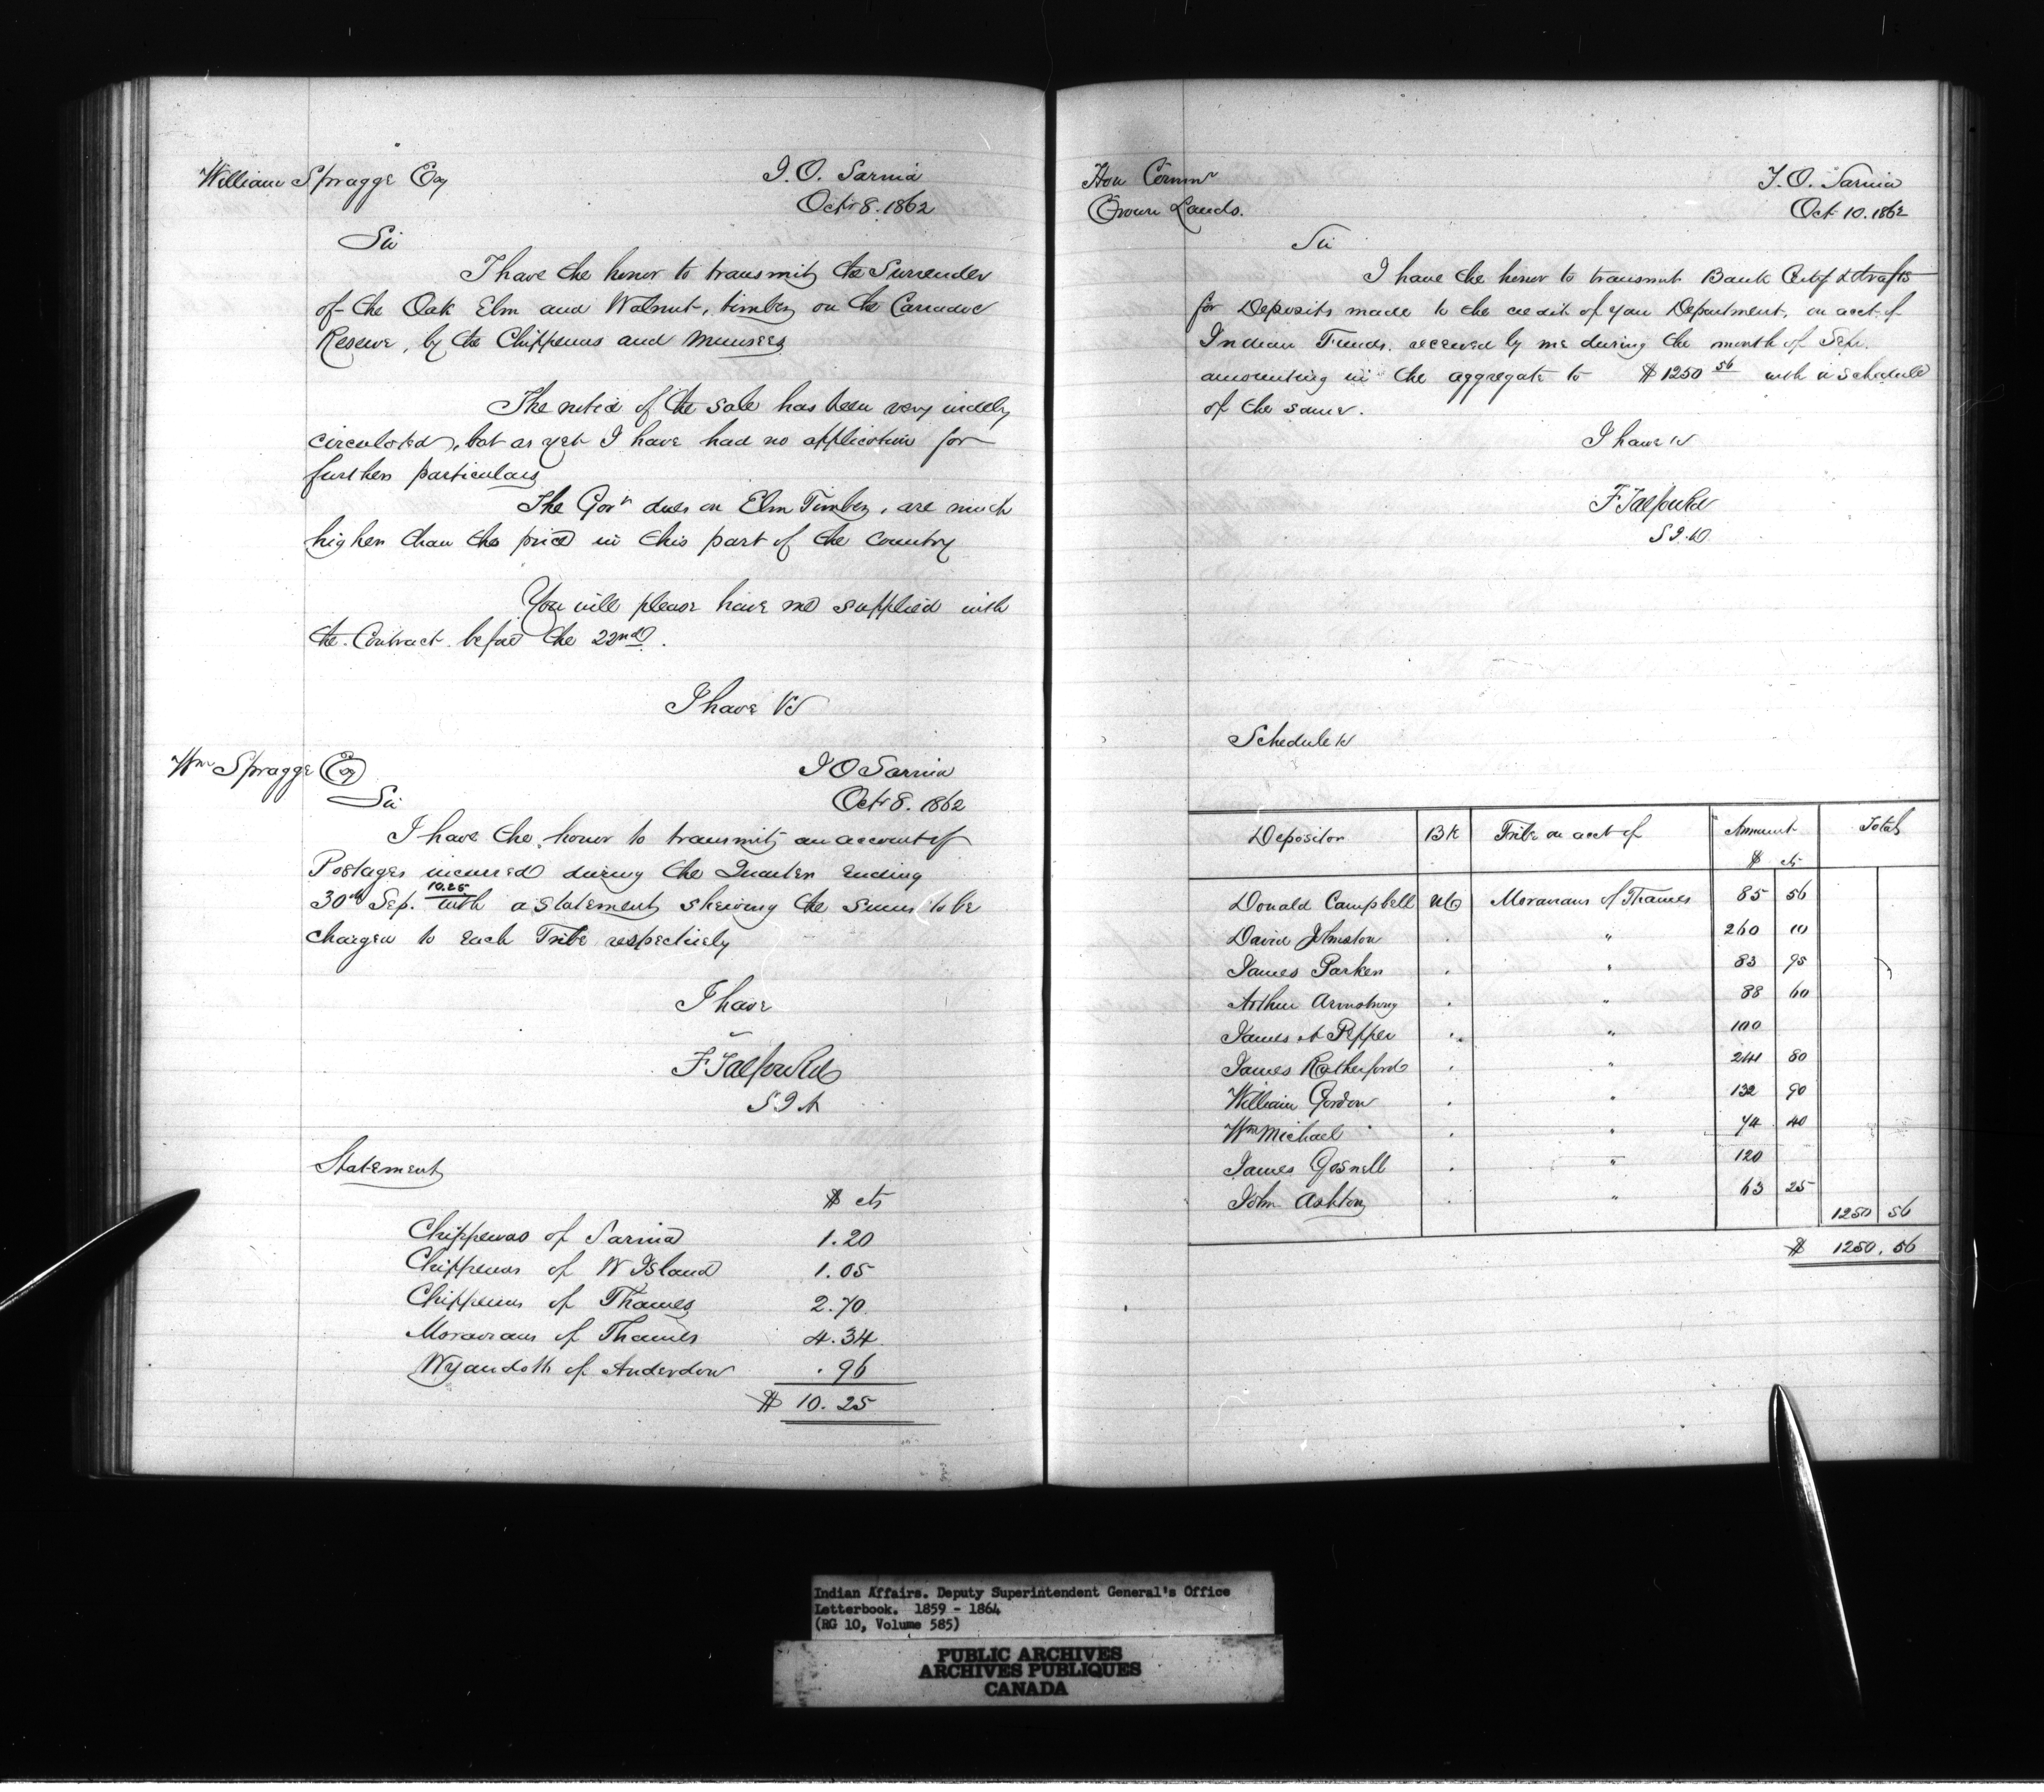 William Spragge Esq
I. O. Sarnia
Octr 8. 1862
Sir
I have the honor to transmit the Surrender
of the Oak Elm and Walnut, timber on the Caradoc
Reserve, by the Chippewas and Munsees
The notice of the sale has been very widely
circulated, but as yet I have had no application for
further particulars
The Govt dues on Elm Timber, are much
higher than the price in this part of the Country
You will please have me supplied with
the Contract before the 22nd.
I have &c
Wm Spragge Esq
I O Sarnia
Sir
Octr 8. 1862
I have the honor to transmit an account of
Postages incurred during the Quarter ending
10.25
30th Sep. with a statement shewing the sums to be
charged to each Tribe respectively
I have
F Talfourd
S I A
Statement
$ cts
Chippewas of Sarnia 1.20
Chippewas of W Island 1.05
Chippewas of Thames 2.70
Moravians of Thames 4.34
Wyandotts of Anderdon .96
$ 10.25
Hon Commr
Crown Lands.
I. O. Sarnia
Oct 10. 1862
Sir
I have the honor to transmit Bank Certf & drafts
for Deposits made to the credit of your Department, on acct of
Indian Funds, received by me during the month of Sep.
amounting in the aggregate to $1250 56 with a schedule
of the same.
I have &c
F Talfourd
S I
Schedule &c
Depositor Bk Tribe on acct of Amount Total
$ cts
Donald Campbell UC Moravians of Thames 85 56
David Johnston . " 260 10
James Parker . " 83 95
Arthur Armstrong . " 88 60
James A Pepper . " 100
James Rutherford . " 241 80
William Gordon . " 132 90
Wm Michael . " 74 40
James Gosnell . " 120
John Ashton . " 63 25
1250 56
$ 1250.56
Indian Affairs. Deputy Superintendent General's Office
Letterbook. 1859 - 1864
(RG 10, Volume 585)
PUBLIC ARCHIVES
ARCHIVES PUBLIQUES
CANADA